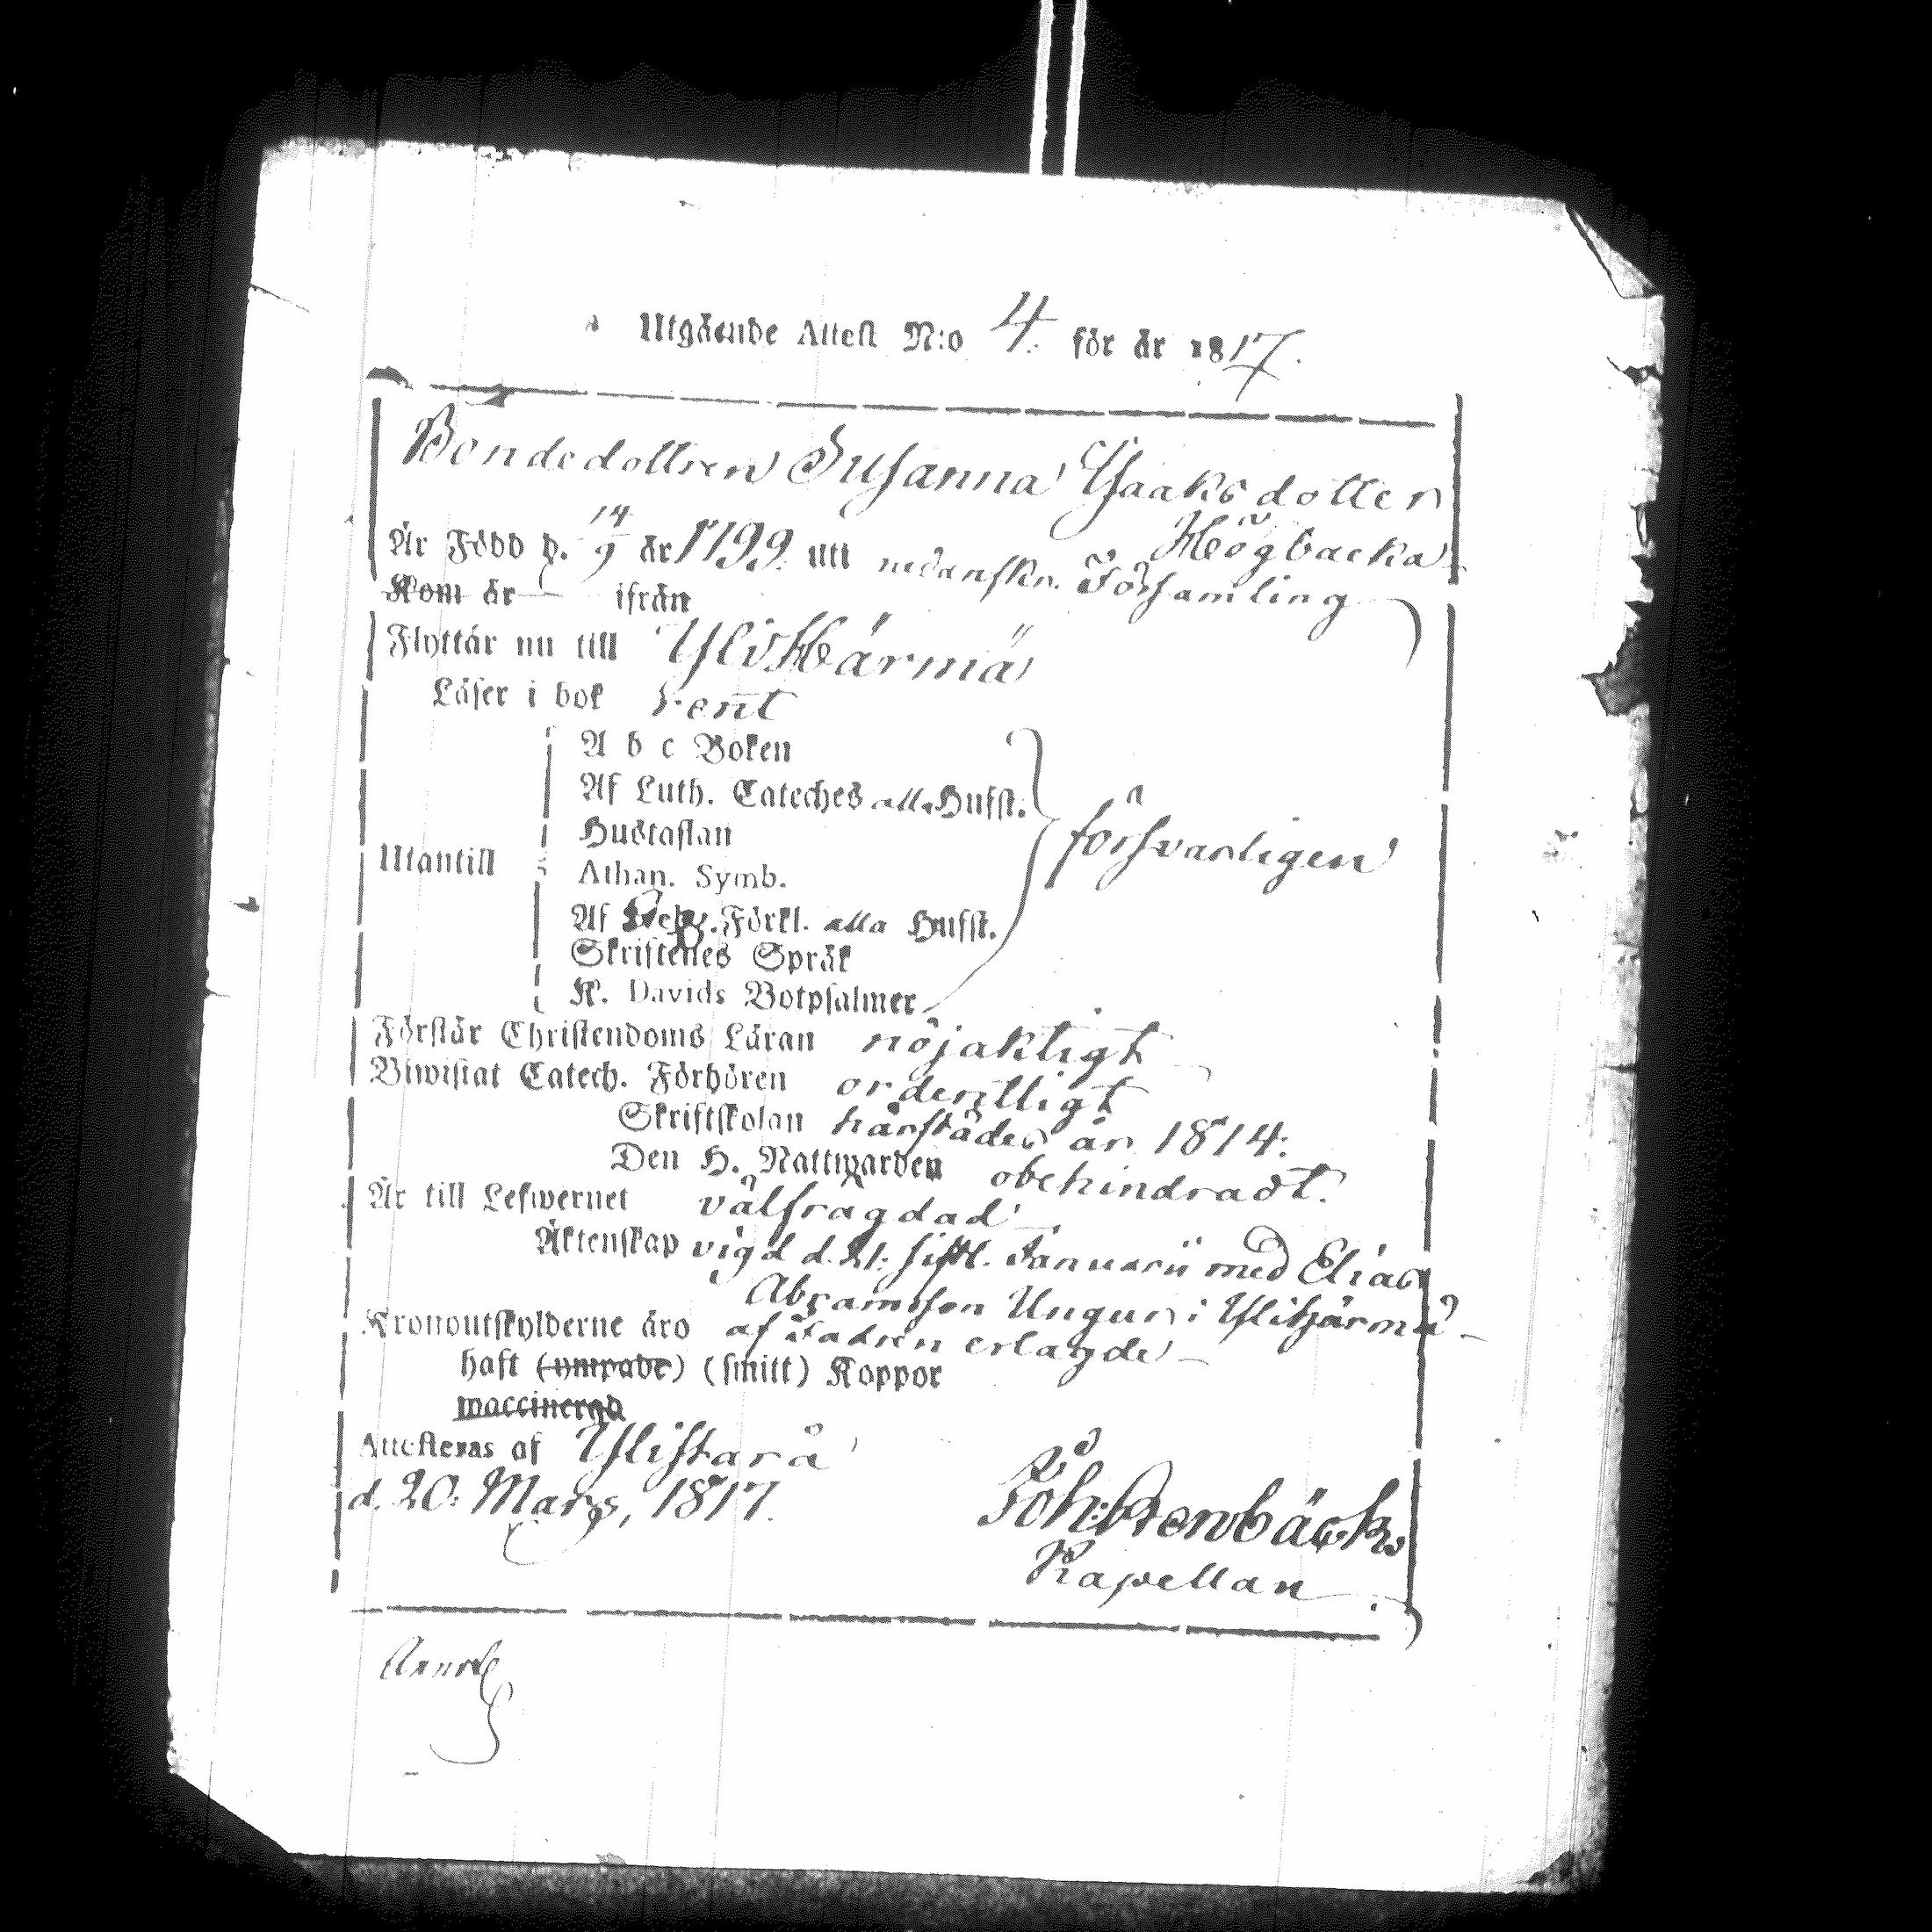 Utgående Attest N:o 4. för år 1817.
Bondedottren Susanna Ysaaksdotter
Högbacka
Är Född d. 14/9 år 1799. uti nedanskn. Församling
Kom år ifrån
Flyttar nu till YliHärmä
Läser i bok rent
A b c Boken
Af Luth. Cateches alla Hufst.
Hustaflan
försvarligen
Utantill
Athan. Symb.
Af Förkl. alla Hufst.
Skriftenes Språk
K. Davids Botpsalmer
Förstår Christendoms Läran nöjaktigt
Biwistat Catech. Förhören ordentligt
Skriftskolan härstädes år 1814.
Den H. Nattwarden obehindradt.
Är till Lefwernet välfrägdad
Äktenskap vigd d. 21. sistl. Januarii med Elias
Abramsson Ungur i Ylihärmä
Kronoutskylderne äro af Fadren erlagde
haft (ympade) (smitt) Koppor
waccinerad
Attesteras af Ylistaro
d. 20. Mars, 1817.
Joh: Stenbäck
Kapellan